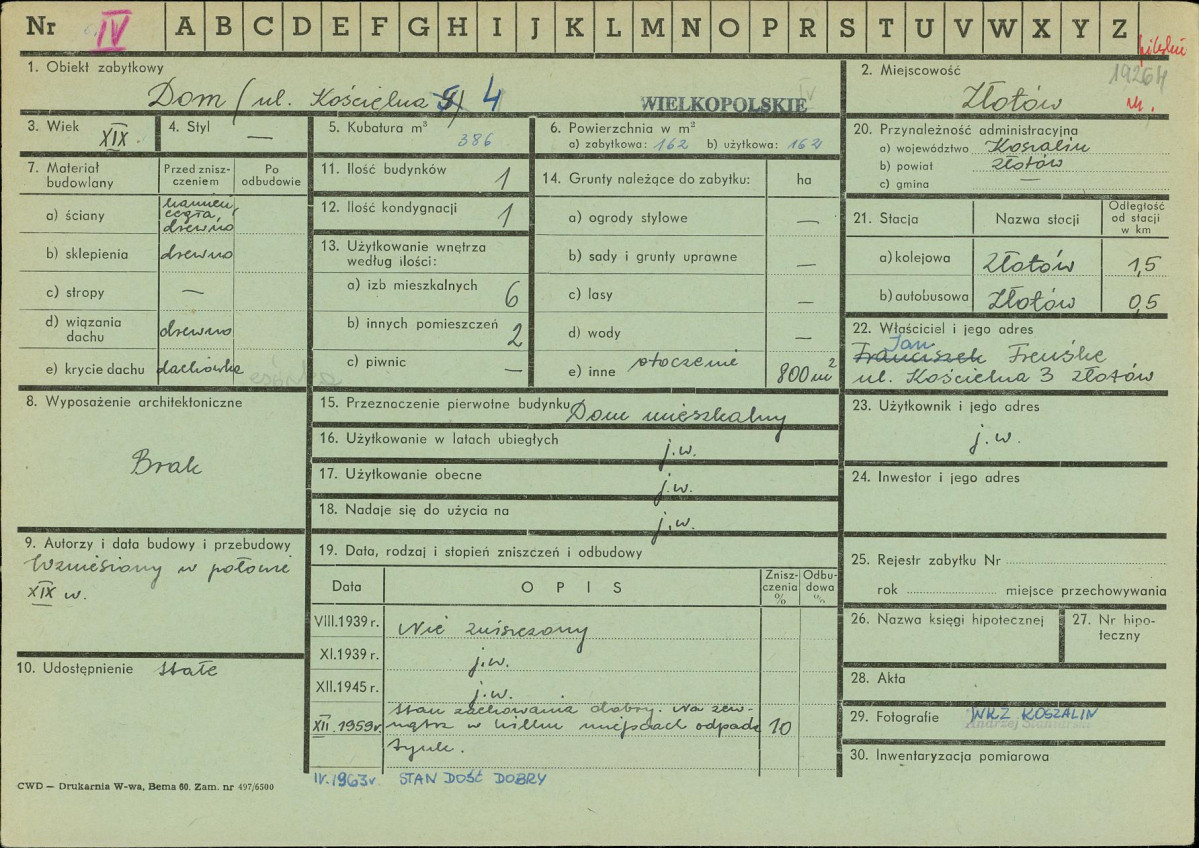 Nr IV A B C D E F G H I J K L M N O P R S T U V W X Y Z
19264
1. Obiekt zabytkowy
Dom (ul. Kościelna 4
WIELKOPOLSKIE
2. Miejscowość
Złotów
3. Wiek XIX
4. Styl —
5. Kubatura m³
386
6. Powierzchnia w m²
a) zabytkowa: 162 b) użytkowa: 162
20. Przynależność administracyjna
a) województwo Koszalin
b) powiat Złotów
c) gmina —
7. Materiał budowlany
Przed znisz-
czeniem
Po
odbudowie
a) ściany kamień, cegła, drewno
b) sklepienia drewno
c) stropy —
d) wiązania dachu drewno
e) krycie dachu dachówka
11. Ilość budynków 1
12. Ilość kondygnacji 1
13. Użytkowanie wnętrza
według ilości:
a) izb mieszkalnych 6
b) innych pomieszczeń 2
c) piwnic —
14. Grunty należące do zabytku: ha
a) ogrody stylowe —
b) sady i grunty uprawne —
c) lasy —
d) wody —
e) inne otoczenie 800 m²
21. Stacja Nazwa stacji
Odległość
od stacji
w km
a) kolejowa Złotów 1,5
b) autobusowa Złotów 0,5
22. Właściciel i jego adres
Jan
Franciszek Freuśke
ul. Kościelna 3 Złotów
8. Wyposażenie architektoniczne
Brak
15. Przeznaczenie pierwotne budynku Dom mieszkalny
16. Użytkowanie w latach ubiegłych j.w.
17. Użytkowanie obecne j.w.
18. Nadaje się do użycia na j.w.
23. Użytkownik i jego adres
j.w.
24. Inwestor i jego adres
9. Autorzy i data budowy i przebudowy
Wzniesiony w połowie
XIX w.
19. Data, rodzaj i stopień zniszczeń i odbudowy
Data O P I S
Znisz-
czenia
%
Odbu-
dowa
%
VIII.1939 r. Nie zniszczony
XI.1939 r. j.w.
XII.1945 r. j.w.
XII.1959r. Stan zachowania dobry. Na zew-
nątrz w kilku miejscach odpada 10
tynk.
IV.1963r. STAN DOŚĆ DOBRY
25. Rejestr zabytku Nr
rok miejsce przechowywania
26. Nazwa księgi hipotecznej
27. Nr hipo-
teczny
10. Udostępnienie Stałe
28. Akta
29. Fotografie WKZ KOSZALIN
30. Inwentaryzacja pomiarowa
CWD — Drukarnia W-wa, Bema 60. Zam. nr 497/6500